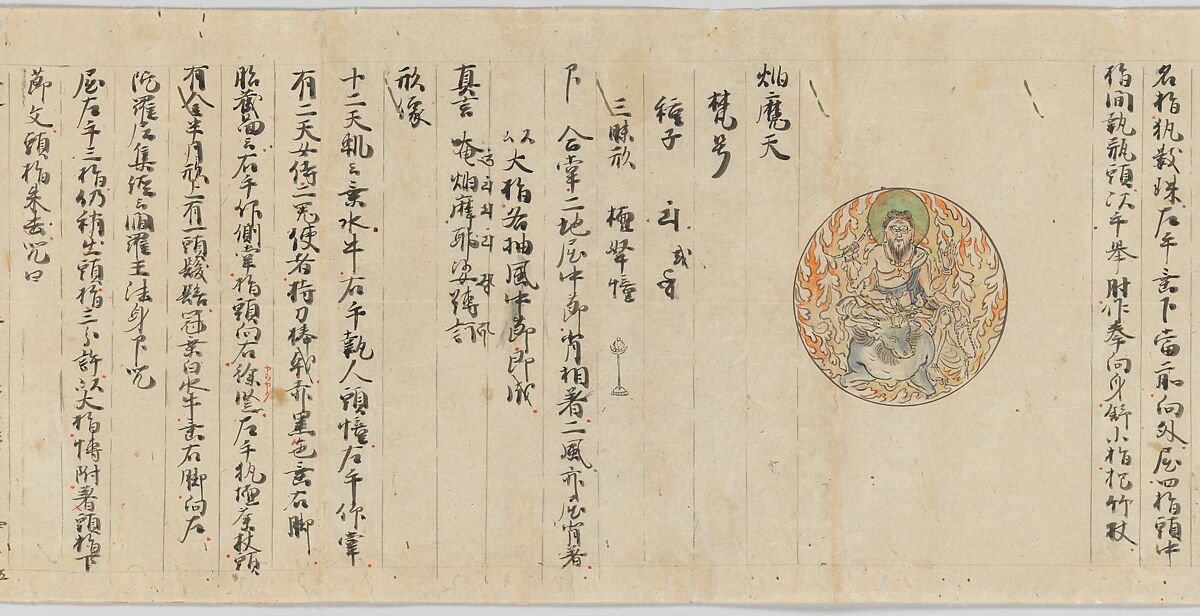 名指執數珠左手垂下當前向外屈四指頭中
指間執瓶頭次手舉肘作拳向身舒小指把竹杖
焔魔天
梵号
種子
或
三昧形 檀拏幢
印 合掌二地屈中節背相著二風亦屈背著
以大指各抽風中節即成
真言 唵焔魔耶娑縛訶
形像
十二天軌云乗水牛右手執人頭幢左手仰掌
有二天女侍二鬼使者持刀棒戟赤黒色垂右脚
胎蔵図云右手作側掌指頭向右徐堅左手執檀拏杖頭
有半月形上有一頭髪髻冠葉白水牛垂右脚向左
陀羅尼集経云閻羅王法身印呪
屈左手三指仍稍出頭指三分許以大指博附著頭指下
節文頭指来去呪曰